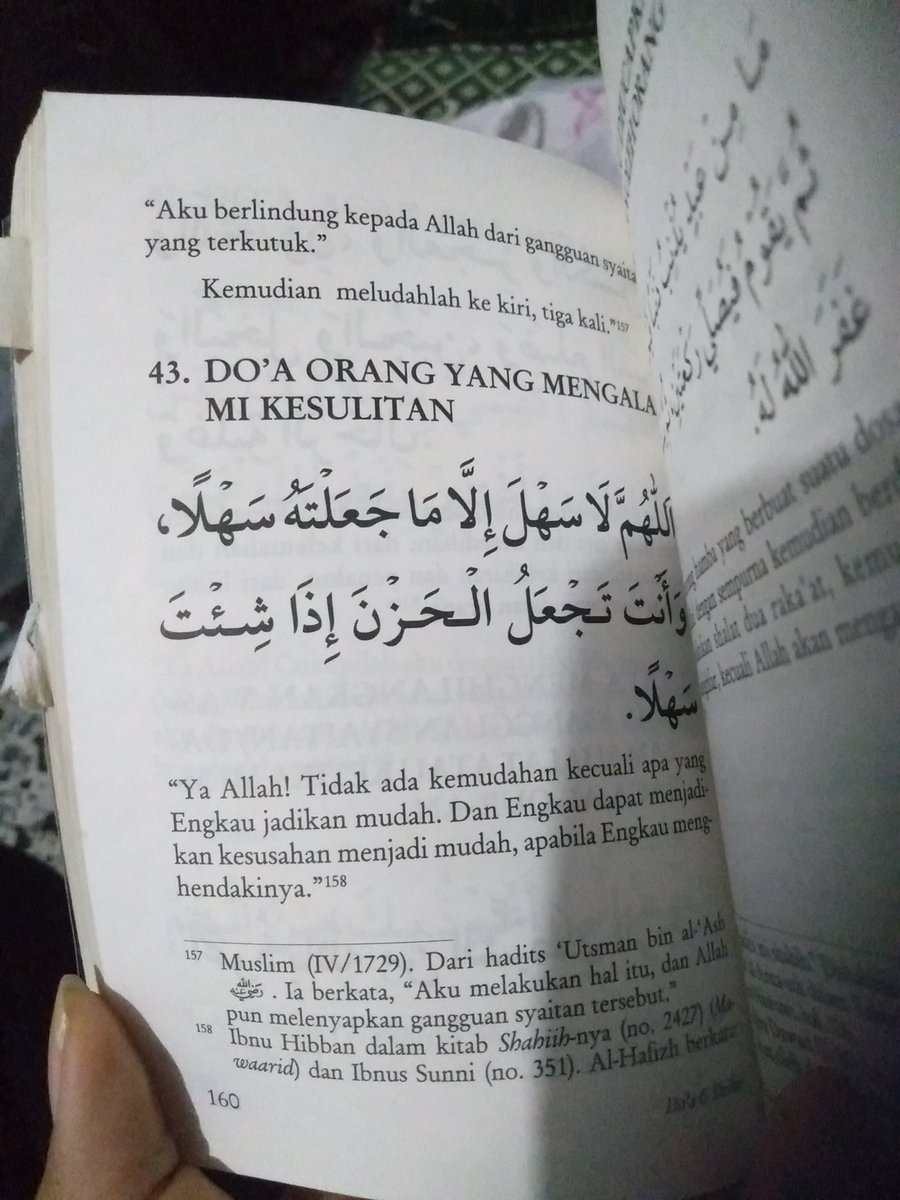 “Aku berlindung kepada Allah dari gangguan syaita
yang terkutuk.”
Kemudian meludahlah ke kiri, tiga kali.”157
43. DO’A ORANG YANG MENGALA
MI KESULITAN
اَللّٰهُمَّ لَا سَهْلَ إِلَّا مَا جَعَلْتَهُ سَهْلًا،
وَأَنْتَ تَجْعَلُ الْحَزْنَ إِذَا شِئْتَ
سَهْلًا.
“Ya Allah! Tidak ada kemudahan kecuali apa yang
Engkau jadikan mudah. Dan Engkau dapat menjadi-
kan kesusahan menjadi mudah, apabila Engkau meng-
hendakinya.”158
157 Muslim (IV/1729). Dari hadits ‘Utsman bin al-‘Ash
. Ia berkata, “Aku melakukan hal itu, dan Allah
pun melenyapkan gangguan syaitan tersebut.”
158 Ibnu Hibban dalam kitab Shahiih-nya (no. 2427) (Ma-
waarid) dan Ibnus Sunni (no. 351). Al-Hafizh berkata
160
Do’a &
ثُمَّ يَقُوْمُ فَيُصَلِّي
غَفَرَ اللهُ لَهُ.
hamba yang berbuat suatu dosa
dengan sempurna kemudian berd
shalat dua raka’at, kemu
kecuali Allah akan menga